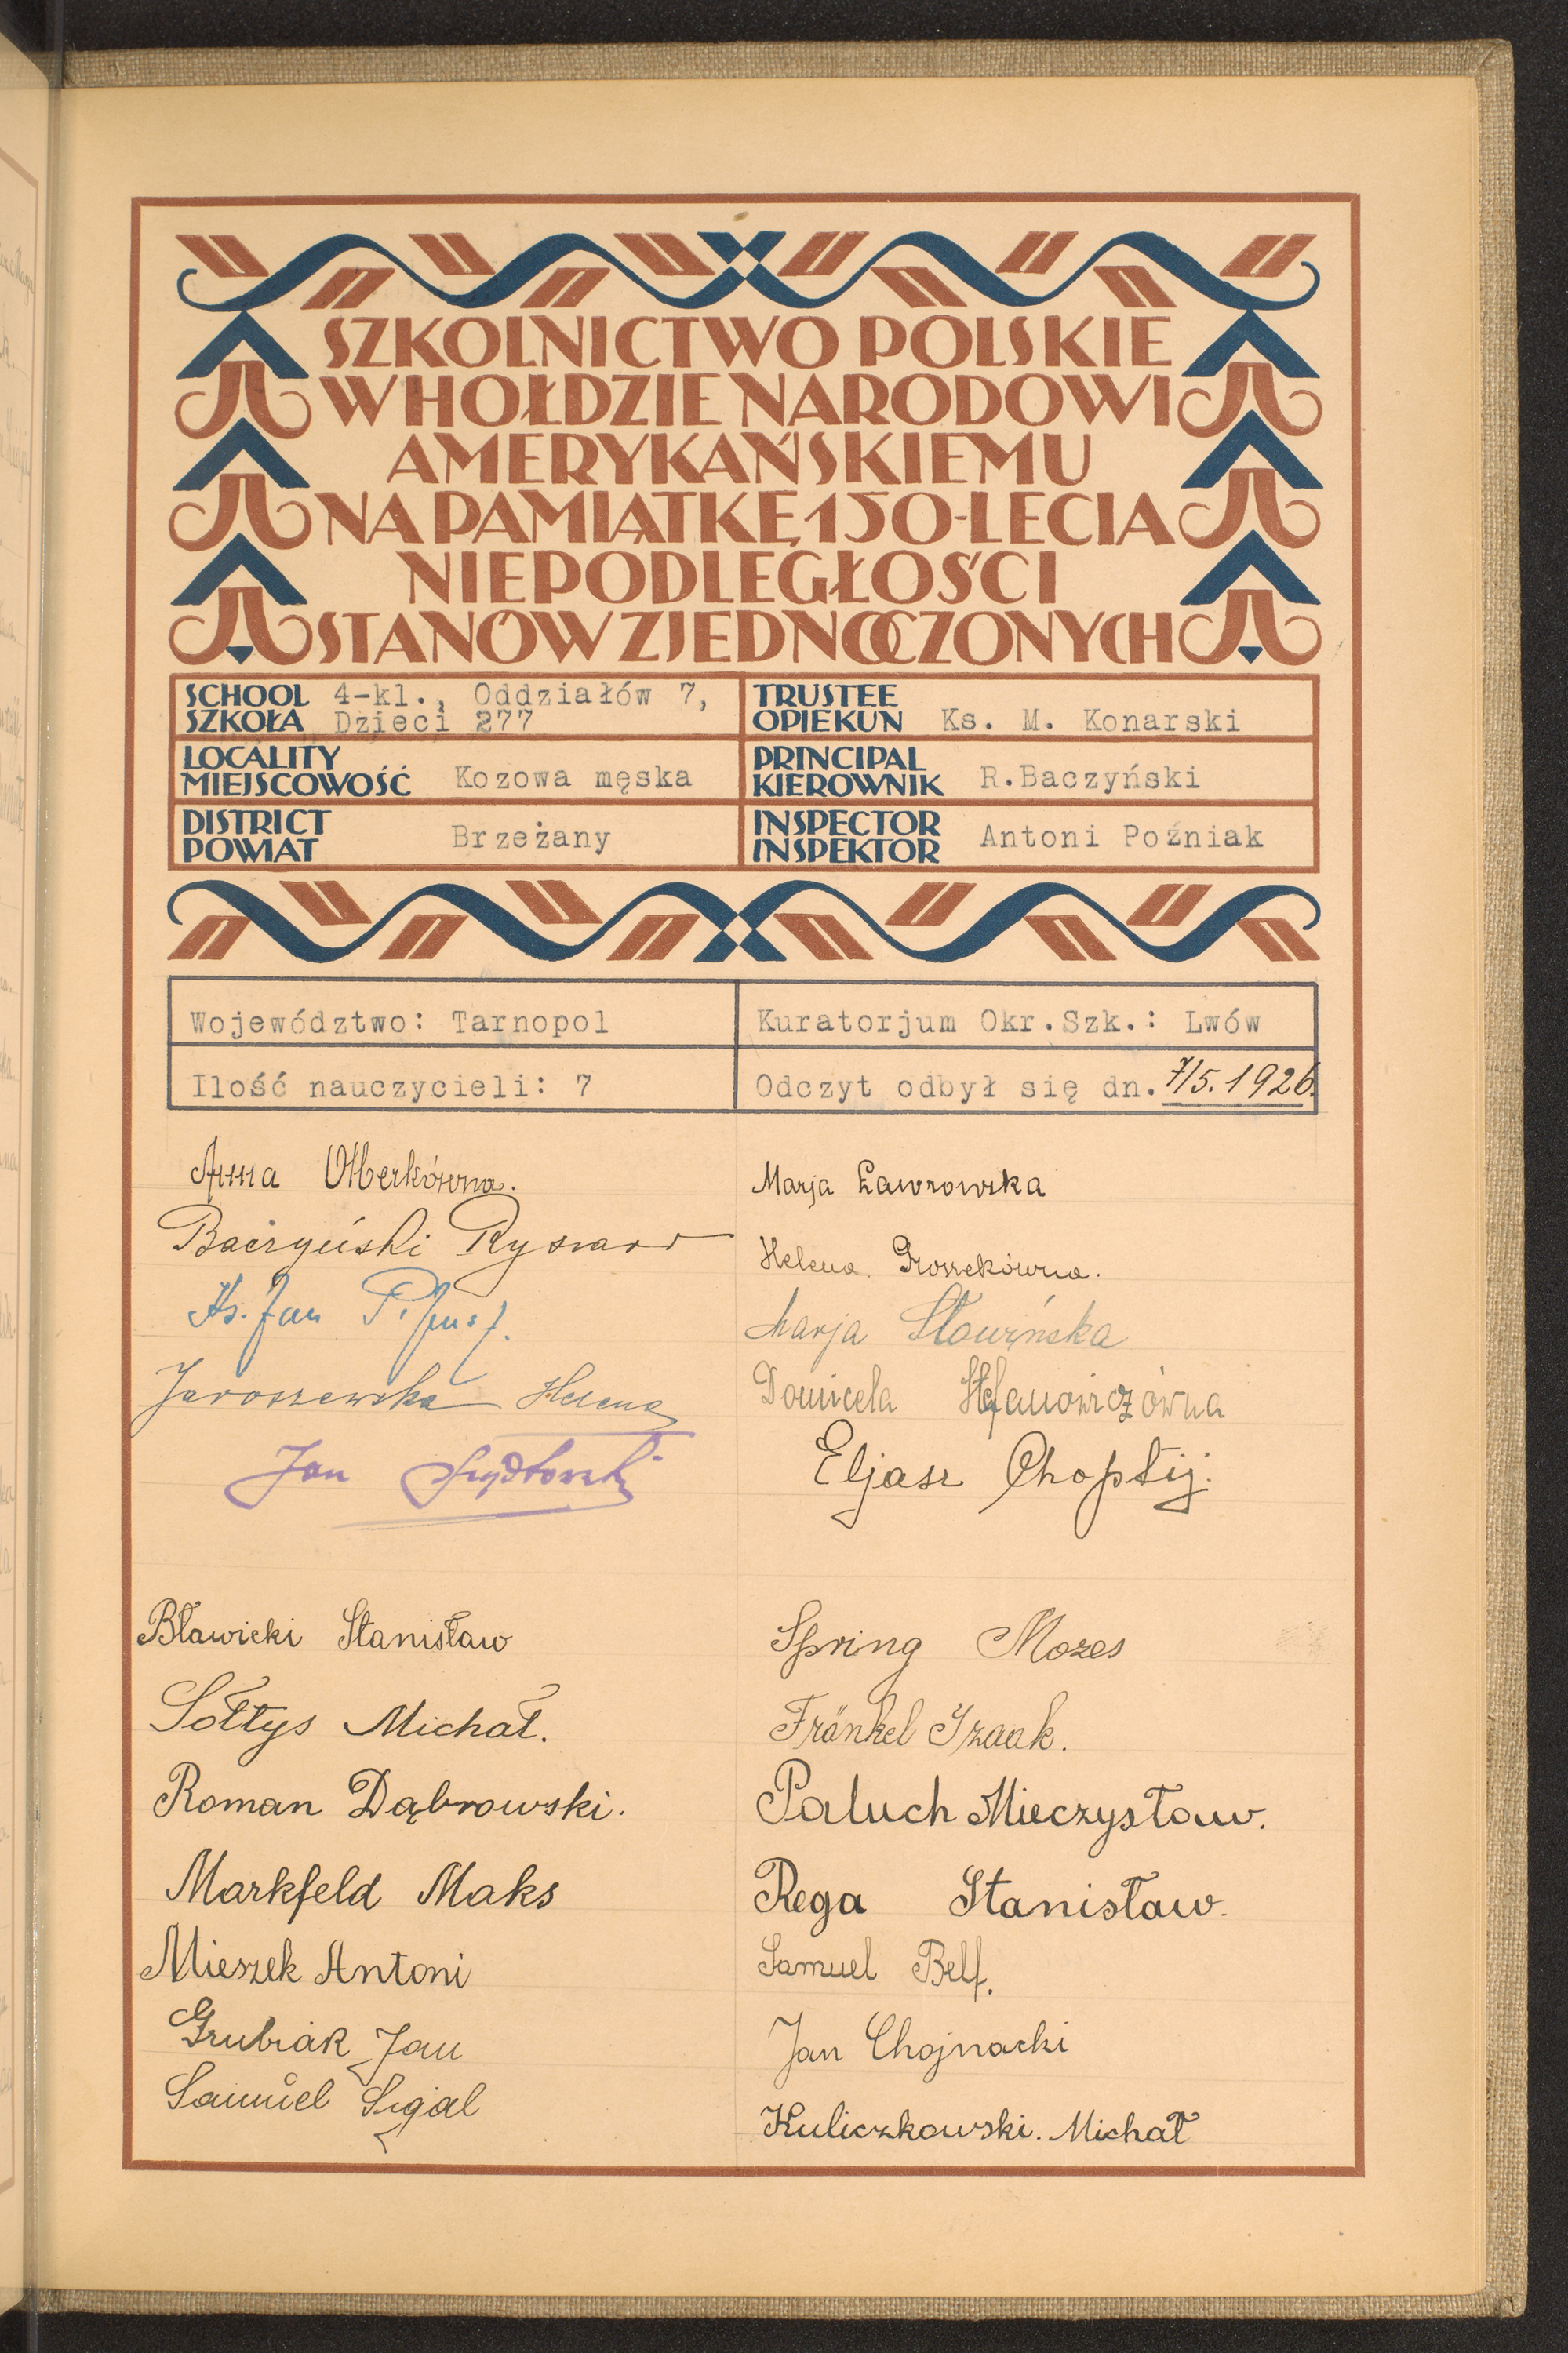 SZKOLNICTWO POLSKIE
W HOŁDZIE NARODOWI
AMERYKAŃSKIEMU
NA PAMIĄTKĘ 150-LECIA
NIEPODLEGŁOŚCI
STANÓW ZJEDNOCZONYCH
SCHOOL 4-kl., Oddziałów 7,
SZKOŁA Dzieci 277
TRUSTEE
OPIEKUN Ks. M. Konarski
LOCALITY
MIEJSCOWOŚĆ Kozowa męska
PRINCIPAL
KIEROWNIK R.Baczyński
DISTRICT
POWIAT Brzeżany
INSPECTOR
INSPEKTOR Antoni Poźniak
Województwo: Tarnopol
Kuratorjum Okr.Szk.: Lwów
Ilość nauczycieli: 7
Odczyt odbył się dn. 7/5. 1926.
Anna
Baczyński Ryszard
Ks. Jan
Jaroszewska Helena
Jan Szydłowski
Marja Ławrowska
Helena Groszekówna.
Marja Sławińska
Domicela Stefanowiczówna
Eljasz Choptij.
Bławicki Stanisław
Sołtys Michał.
Roman Dąbrowski.
Markfeld Maks
Mieszek Antoni
Grubiak Jan
Samuel Sigal
Spring Mozes
Fränkel Izaak.
Paluch Mieczysław.
Rega Stanisław.
Samuel Belf.
Jan Chojnacki
Kuliczkowski. Michał